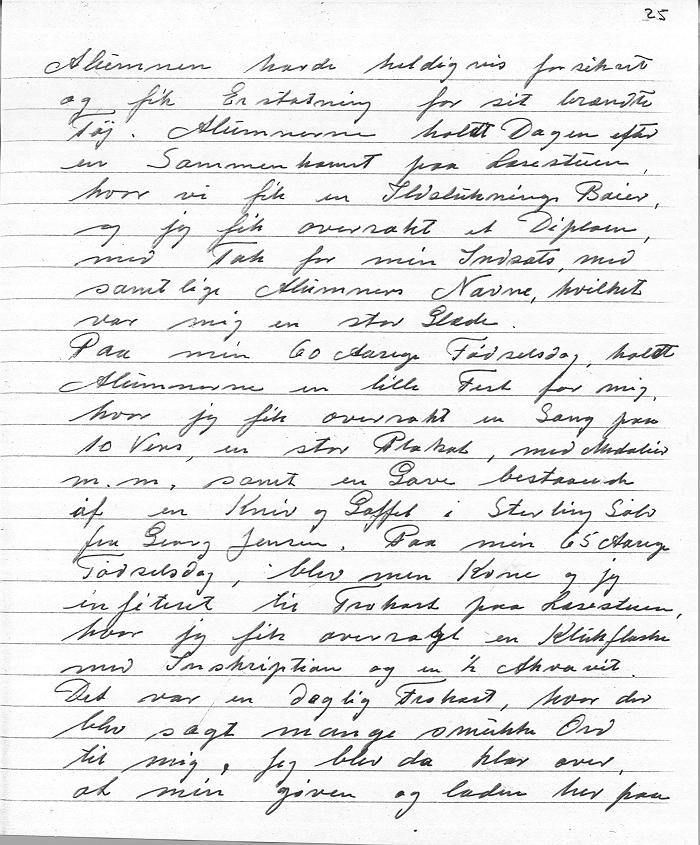 25
Alumnen havde heldigvis forsikret
og fik Erstatning for sit brændte
Tøj. Alumnerne holdt Dagen efter
en Sammenkomst paa Læsestuen,
hvor vi fik en Ildsluknings Baier,
og jeg fik overrakt et Diplom,
med Tak for min Indsats, med
samtlige Alumners Navne, hvilket
var mig en stor Glæde.
Paa min 60 Aarige Fødselsdag, holdt
Alumnerne en lille Fest for mig,
hvor jeg fik overrakt en Sang paa
10 Vers, en stor Plakat, med Medalier
m.m, samt en Gave bestaaende
af en Kniv og Gaffel i Sterling Sølv
fra Georg Jensen. Paa min 65 Aarige
Fødselsdag, blev men Kone og jeg
inviteret til Frokost paa Læsestuen,
hvor jeg fik overragt en Klukflaske
med Inskription og en ½ Akvavit.
Det var en dejlig Frokost, hvor der
blev sagt mange smukke Ord
til mig, jeg blev da klar over,
at min gøren og laden her paa